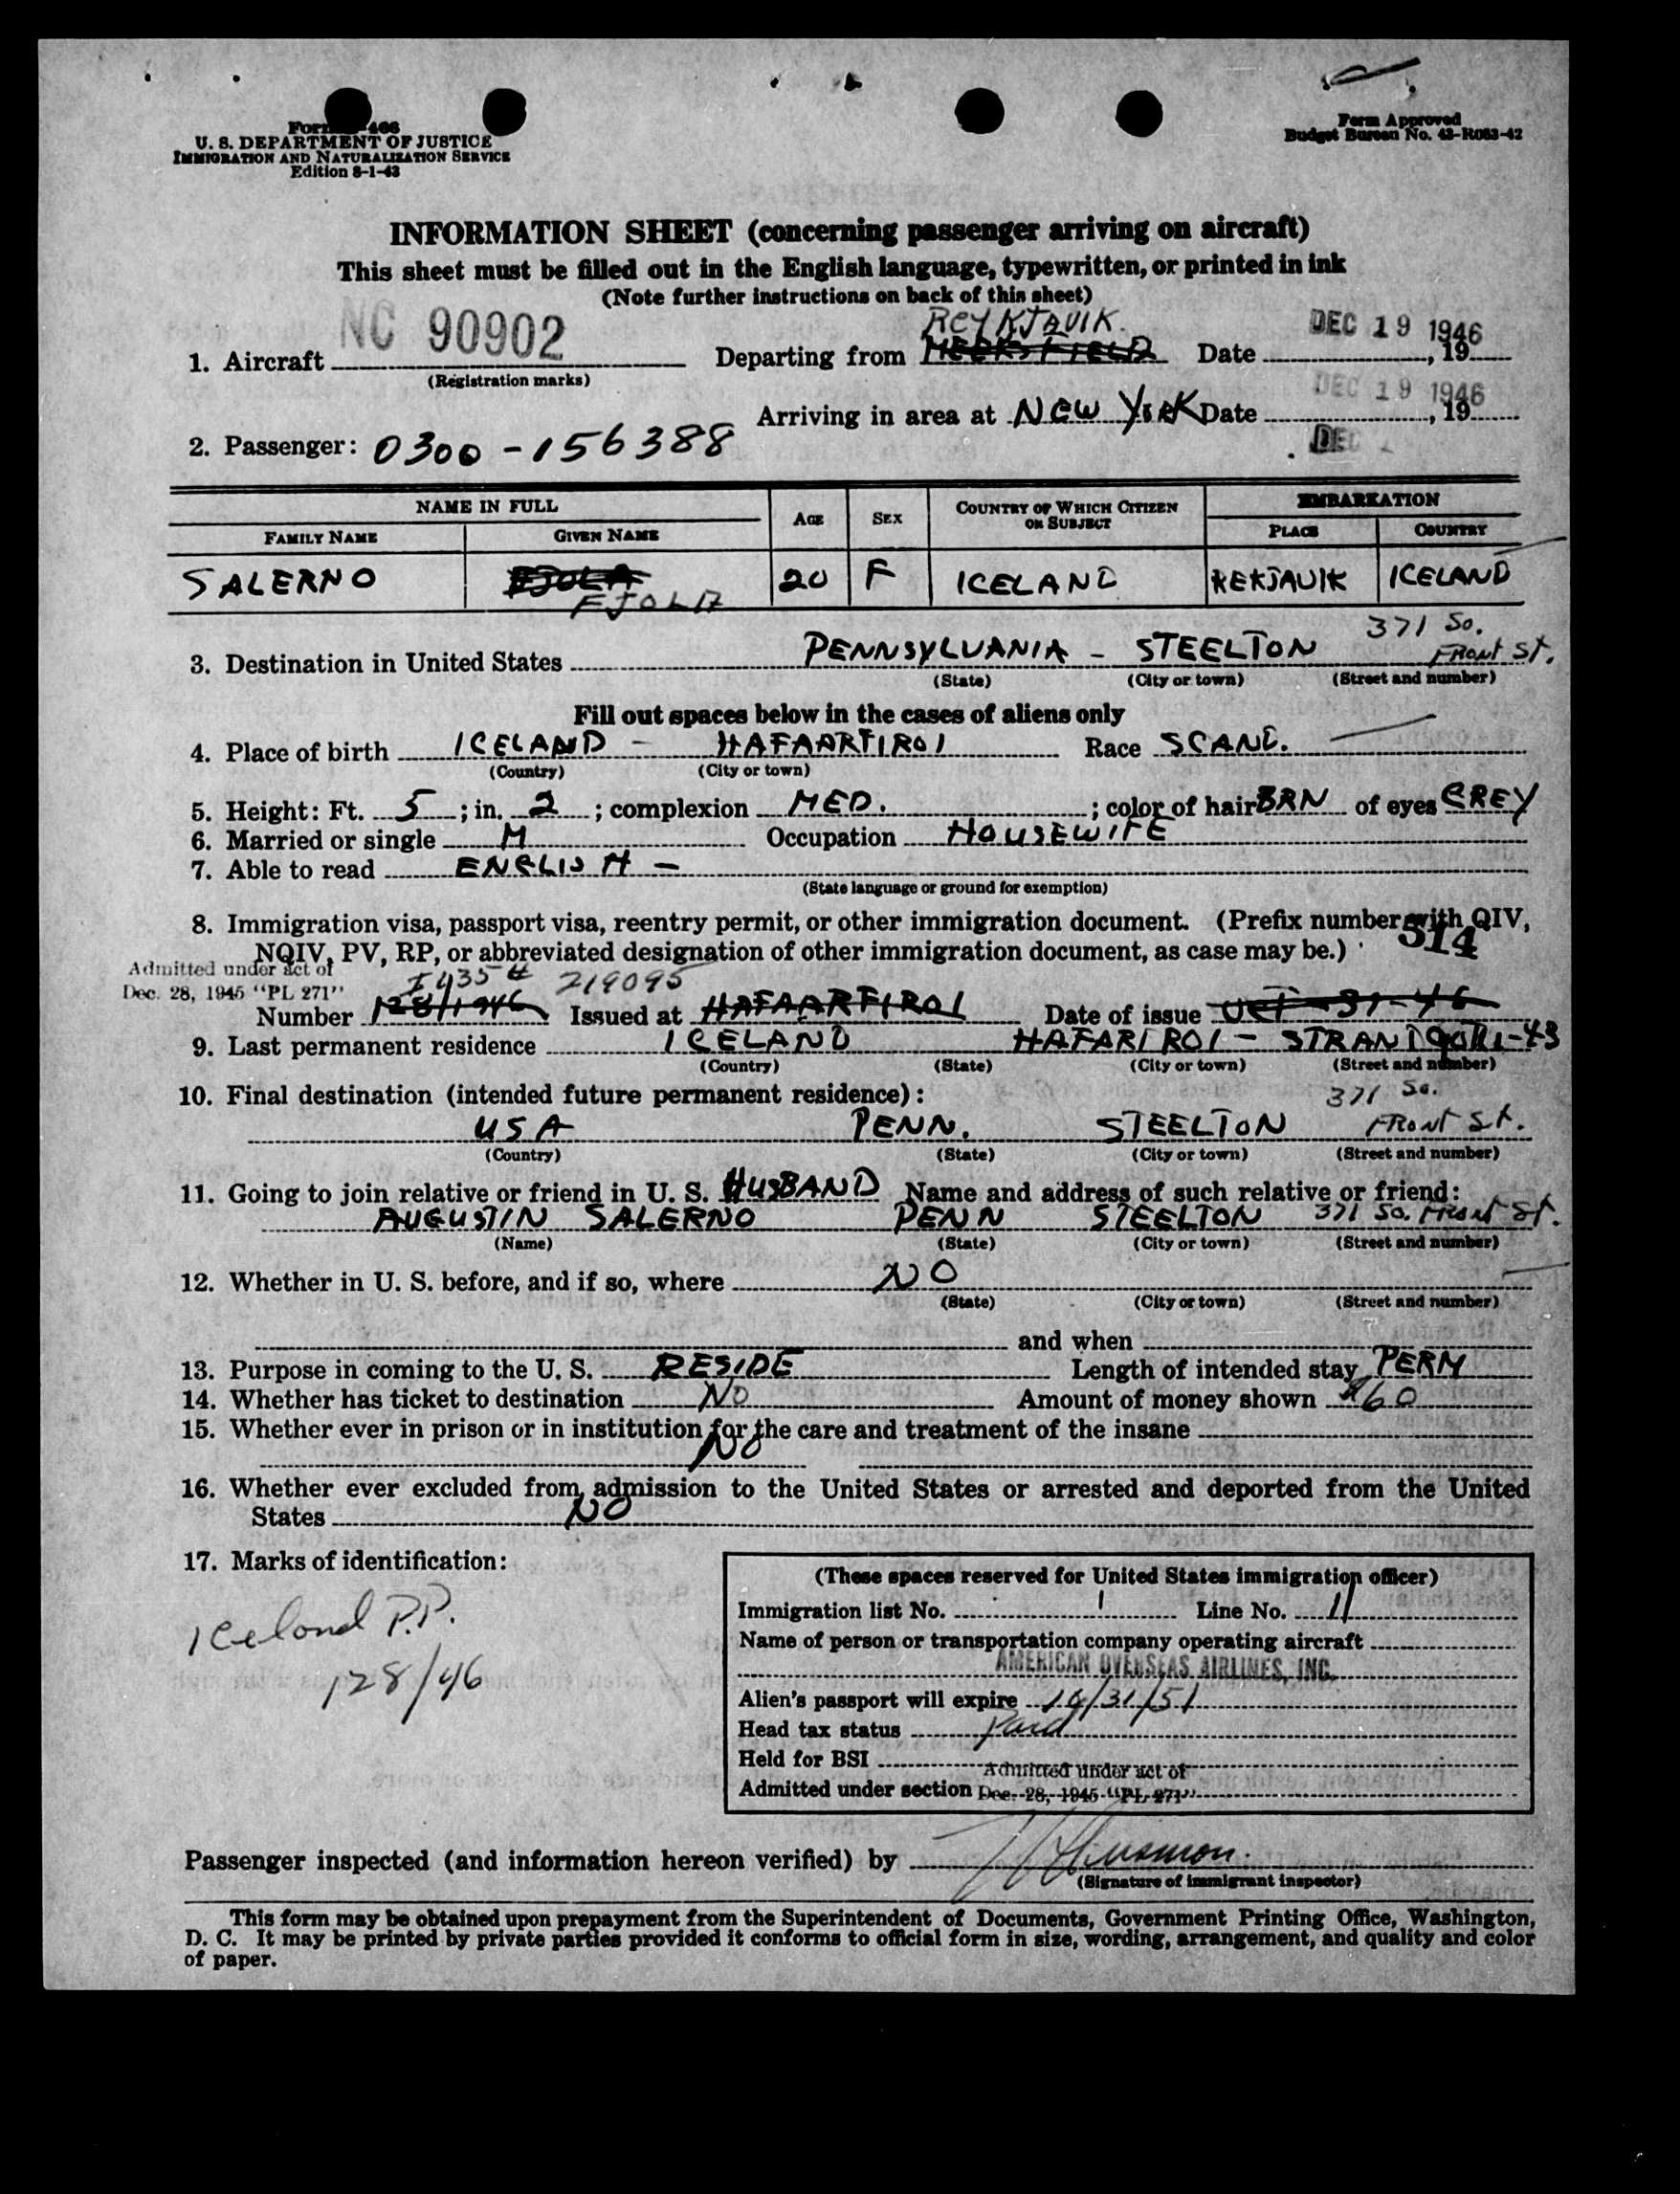 U. S. DEPARTMENT OF JUSTICE
IMMIGRATION AND NATURALIZATION SERVICE
Edition 8-1-43
Form Approved
Budget Bureau No. 43-R063-42
INFORMATION SHEET (concerning passenger arriving on aircraft)
This sheet must be filled out in the English language, typewritten, or printed in ink
(Note further instructions on back of this sheet)
1. Aircraft NC 90902 Departing from REYKJAVIK. MEEKS FIELD Date DEC 19 1946, 19
(Registration marks)
Arriving in area at NEW YORK Date DEC 19 1946, 19
2. Passenger: 0300-156388 DEC
NAME IN FULL AGE SEX COUNTRY OF WHICH CITIZEN OR SUBJECT EMBARKATION
FAMILY NAME GIVEN NAME PLACE COUNTRY
SALERNO FJOLA 20 F ICELAND REKJAVIK ICELAND
FJOLA
371 So.
3. Destination in United States PENNSYLVANIA - STEELTON FRONT St.
(State) (City or town) (Street and number)
Fill out spaces below in the cases of aliens only
4. Place of birth ICELAND - HAFAARFIROI Race SCAND.
(Country) (City or town)
5. Height: Ft. 5; in. 2; complexion MED.; color of hair BRN of eyes GREY
6. Married or single M Occupation HOUSEWIFE
7. Able to read ENGLISH -
(State language or ground for exemption)
8. Immigration visa, passport visa, reentry permit, or other immigration document. (Prefix number with QIV,
NQIV, PV, RP, or abbreviated designation of other immigration document, as case may be.) 514
Admitted under act of
Dec. 28, 1945 "PL 271"
I 435 # 219095
Number 128/1946 Issued at HAFAARFIROI Date of issue OCT-31-46
9. Last permanent residence ICELAND HAFARFROI - STRANDgotu-43
(Country) (State) (City or town) (Street and number)
10. Final destination (intended future permanent residence): 371 So.
USA PENN. STEELTON FRONT St.
(Country) (State) (City or town) (Street and number)
11. Going to join relative or friend in U. S. HUSBAND Name and address of such relative or friend:
AUGUSTIN SALERNO PENN STEELTON 371 So. Front St.
(Name) (State) (City or town) (Street and number)
12. Whether in U. S. before, and if so, where NO
(State) (City or town) (Street and number)
and when
13. Purpose in coming to the U. S. RESIDE Length of intended stay PERM
14. Whether has ticket to destination NO Amount of money shown $60
15. Whether ever in prison or in institution for the care and treatment of the insane
NO
16. Whether ever excluded from admission to the United States or arrested and deported from the United
States NO
17. Marks of identification:
Iceland P.P.
128/46
(These spaces reserved for United States immigration officer)
Immigration list No. 1 Line No. 11
Name of person or transportation company operating aircraft
AMERICAN OVERSEAS AIRLINES, INC.
Alien's passport will expire 10/31/51
Head tax status Paid
Held for BSI
Admitted under act of
Admitted under section Dec. 28, 1945 "PL 271"
Passenger inspected (and information hereon verified) by
(Signature of immigrant inspector)
This form may be obtained upon prepayment from the Superintendent of Documents, Government Printing Office, Washington,
D. C. It may be printed by private parties provided it conforms to official form in size, wording, arrangement, and quality and color
of paper.